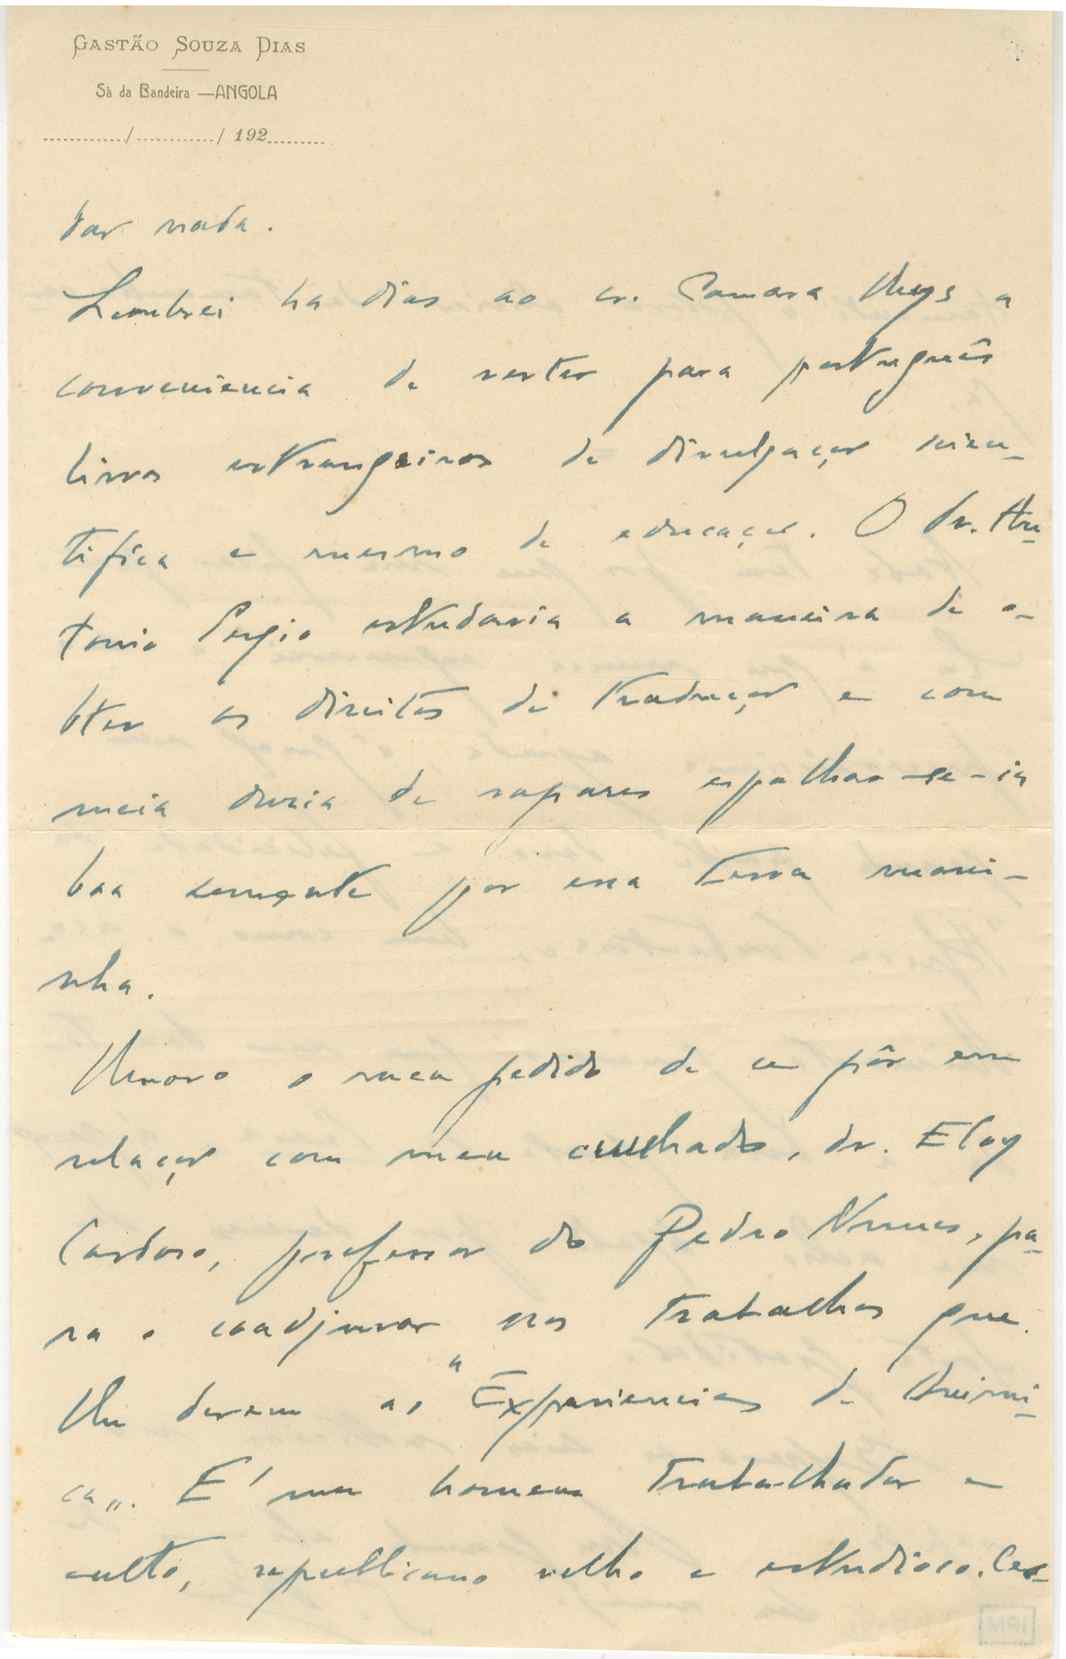 GASTÃO SOUZA DIAS
Sá da Bandeira — ANGOLA
............/............/ 192.........
dar nada.
Lembrei ha dias ao sr. Camara Reys a
conveniencia de verter para português
livros estrangeiros de divulgação scien-
tifica e mesmo de educação. O dr. An-
tonio Sergio estudaria a maneira de o-
bter os direitos de tradução e com
meia duzia de rapazes espalhar-se-ia
boa semente por essa terra mani-
nha.
Renovo o meu pedido de se pôr em
relação com meu cunhado, dr. Eloy
Cardoso, professor do Pedro Nunes, pa-
ra o coadjuvar nos trabalhos que
lhe derem as "Experiencias de Quimi-
ca„. E' um homem trabalhador e
culto, republicano velho e estudioso.